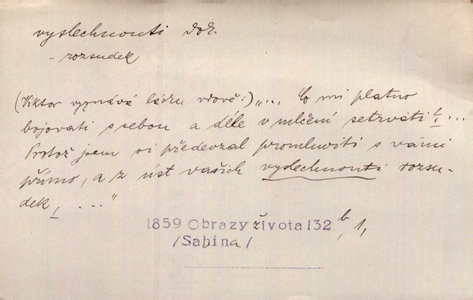 vyslechnouti dok.
- rozsudek
(Viktor vyznává lásku vdově:) „... Co mi platno
bojovati s sebou a déle v mlčení setrvati! ...
Protož jsem si předevzal promluviti s vámi
přímo, a z úst vašich vyslechnouti rozsu-
dek, ..."
1859 Obrazy života 132 b, 1,
/Sabina/